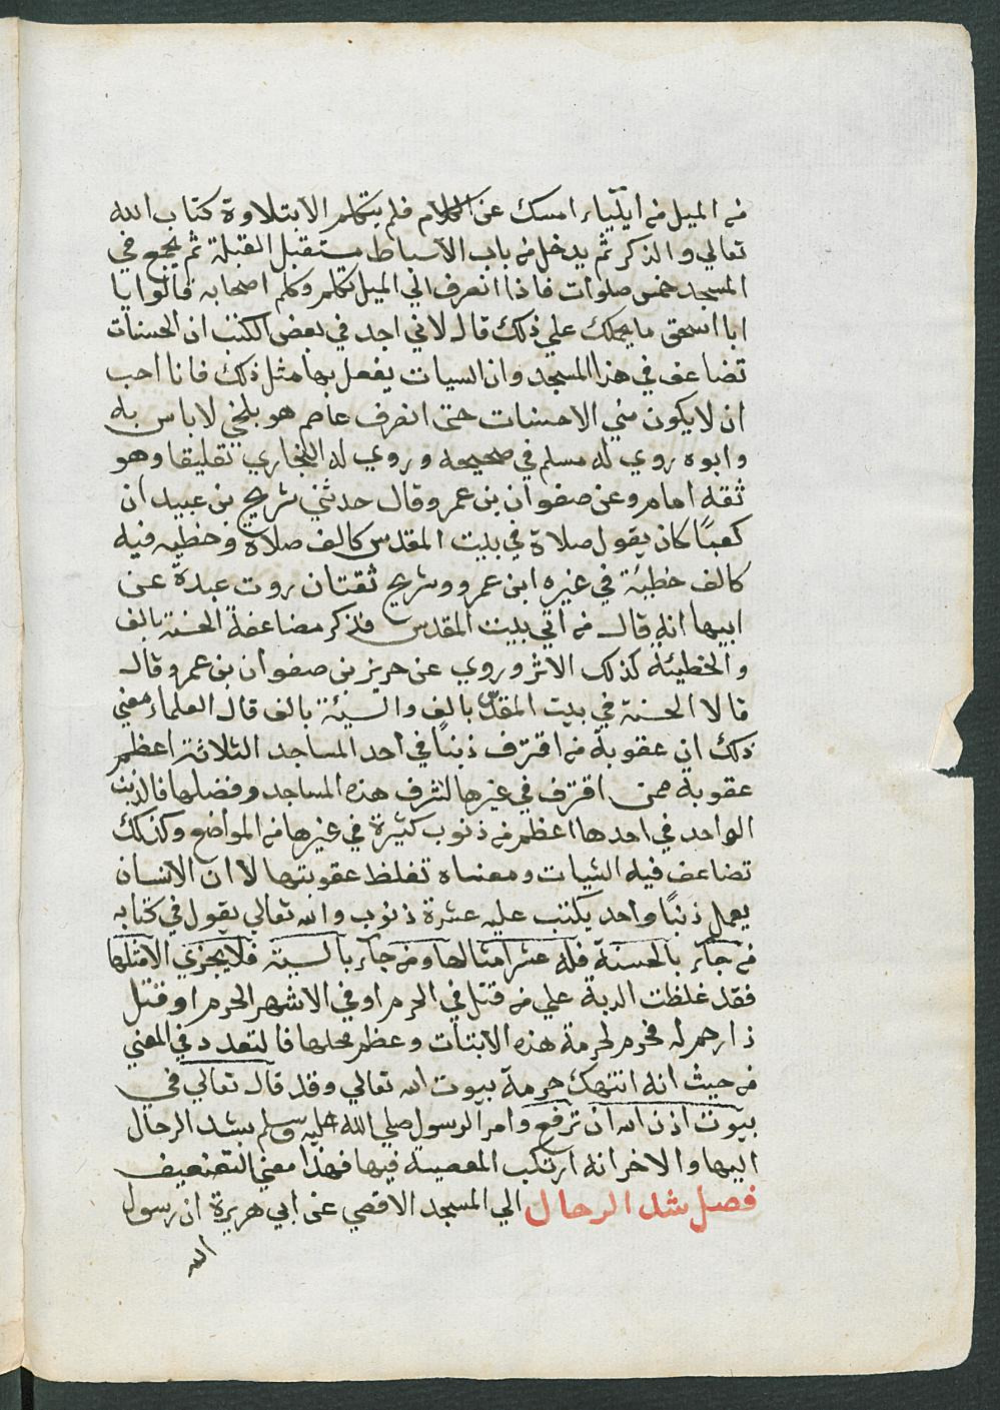 من الميل من ايلياء امسك عن الكلام فلم يتكلم الا بتلاوة كتاب الله
تعالي والذكر ثم يدخل من باب الاسباط مستقبل القبلة ثم يجمع في
المسجد خمس صلوات فاذا انصرف الي الميل تكلم وكلم اصحابه قالوا يا
ابا اسحق ما يحملك علي ذلك قال لاني اجد في بعض الكتب ان الحسنات
تضاعف في هذا المسجد وان السيات يفعل بها مثل ذلك فانا احب
ان لا يكون مني الا حسنات حتى انصرف عاصم هو بلخي لا باس به
وابوه روي له مسلم في صحيحه وروي له البخاري تعليقا وهو
ثقه امام وعن صفوان بن عمرو قال حدثني شريح بن عبيد ان
كعبًا كان يقول صلاة في بيت المقدس كالف صلاة وخطيه فيه
كالف خطيئة في غيره ابن عمرو وشريح ثقتان روت عبدة عن
ابيها انه قال من اتي بيت المقدس فذكر مضاعفة الحسنة بالف
والخطيئة كذلك الاثر وروي عن حريز بن صفوان بن عمرو قال
قالا الحسنة في بيت المقدس بالف والسيئة بالف قال العلماء معني
ذلك ان عقوبة من اقترف ذنبًا في احد المساجد الثلاثة اعظم
عقوبة ممن اقترف في غيرها لشرف هذه المساجد وفضلها فالذنب
الواحد في احدها اعظم من ذنوب كثيرة في غيرها من المواضع وكذلك
تضاعف فيه السيات ومعناه تغلظ عقوبتها لا ان الانسان
يعمل ذنبًا واحد يكتب عليه عشرة ذنوب والله تعالي يقول في كتابه
من جآء بالحسنة فله عشر امثالها ومن جآء بالسيئة فلا يجزي الا مثلها
فقد غلظت الدية علي من قتل في الحرم او في الاشهر الحرم او قتل
ذا رحم له محرم لحرمة هذه وعظم محلها فالتعدد في المعني
من حيث انه انتهك حرمة بيوت الله تعالي وقد قال تعالي في
بيوت اذن الله ان ترفع وامر الرسول صلي الله عليه وسلم بشد الرحال
اليها والاخر انه ارتكب المعصية فيها فهذا معني التضعيف
فصل شد الرحال الي المسجد الاقصي عن ابي هريرة ان رسول
الله